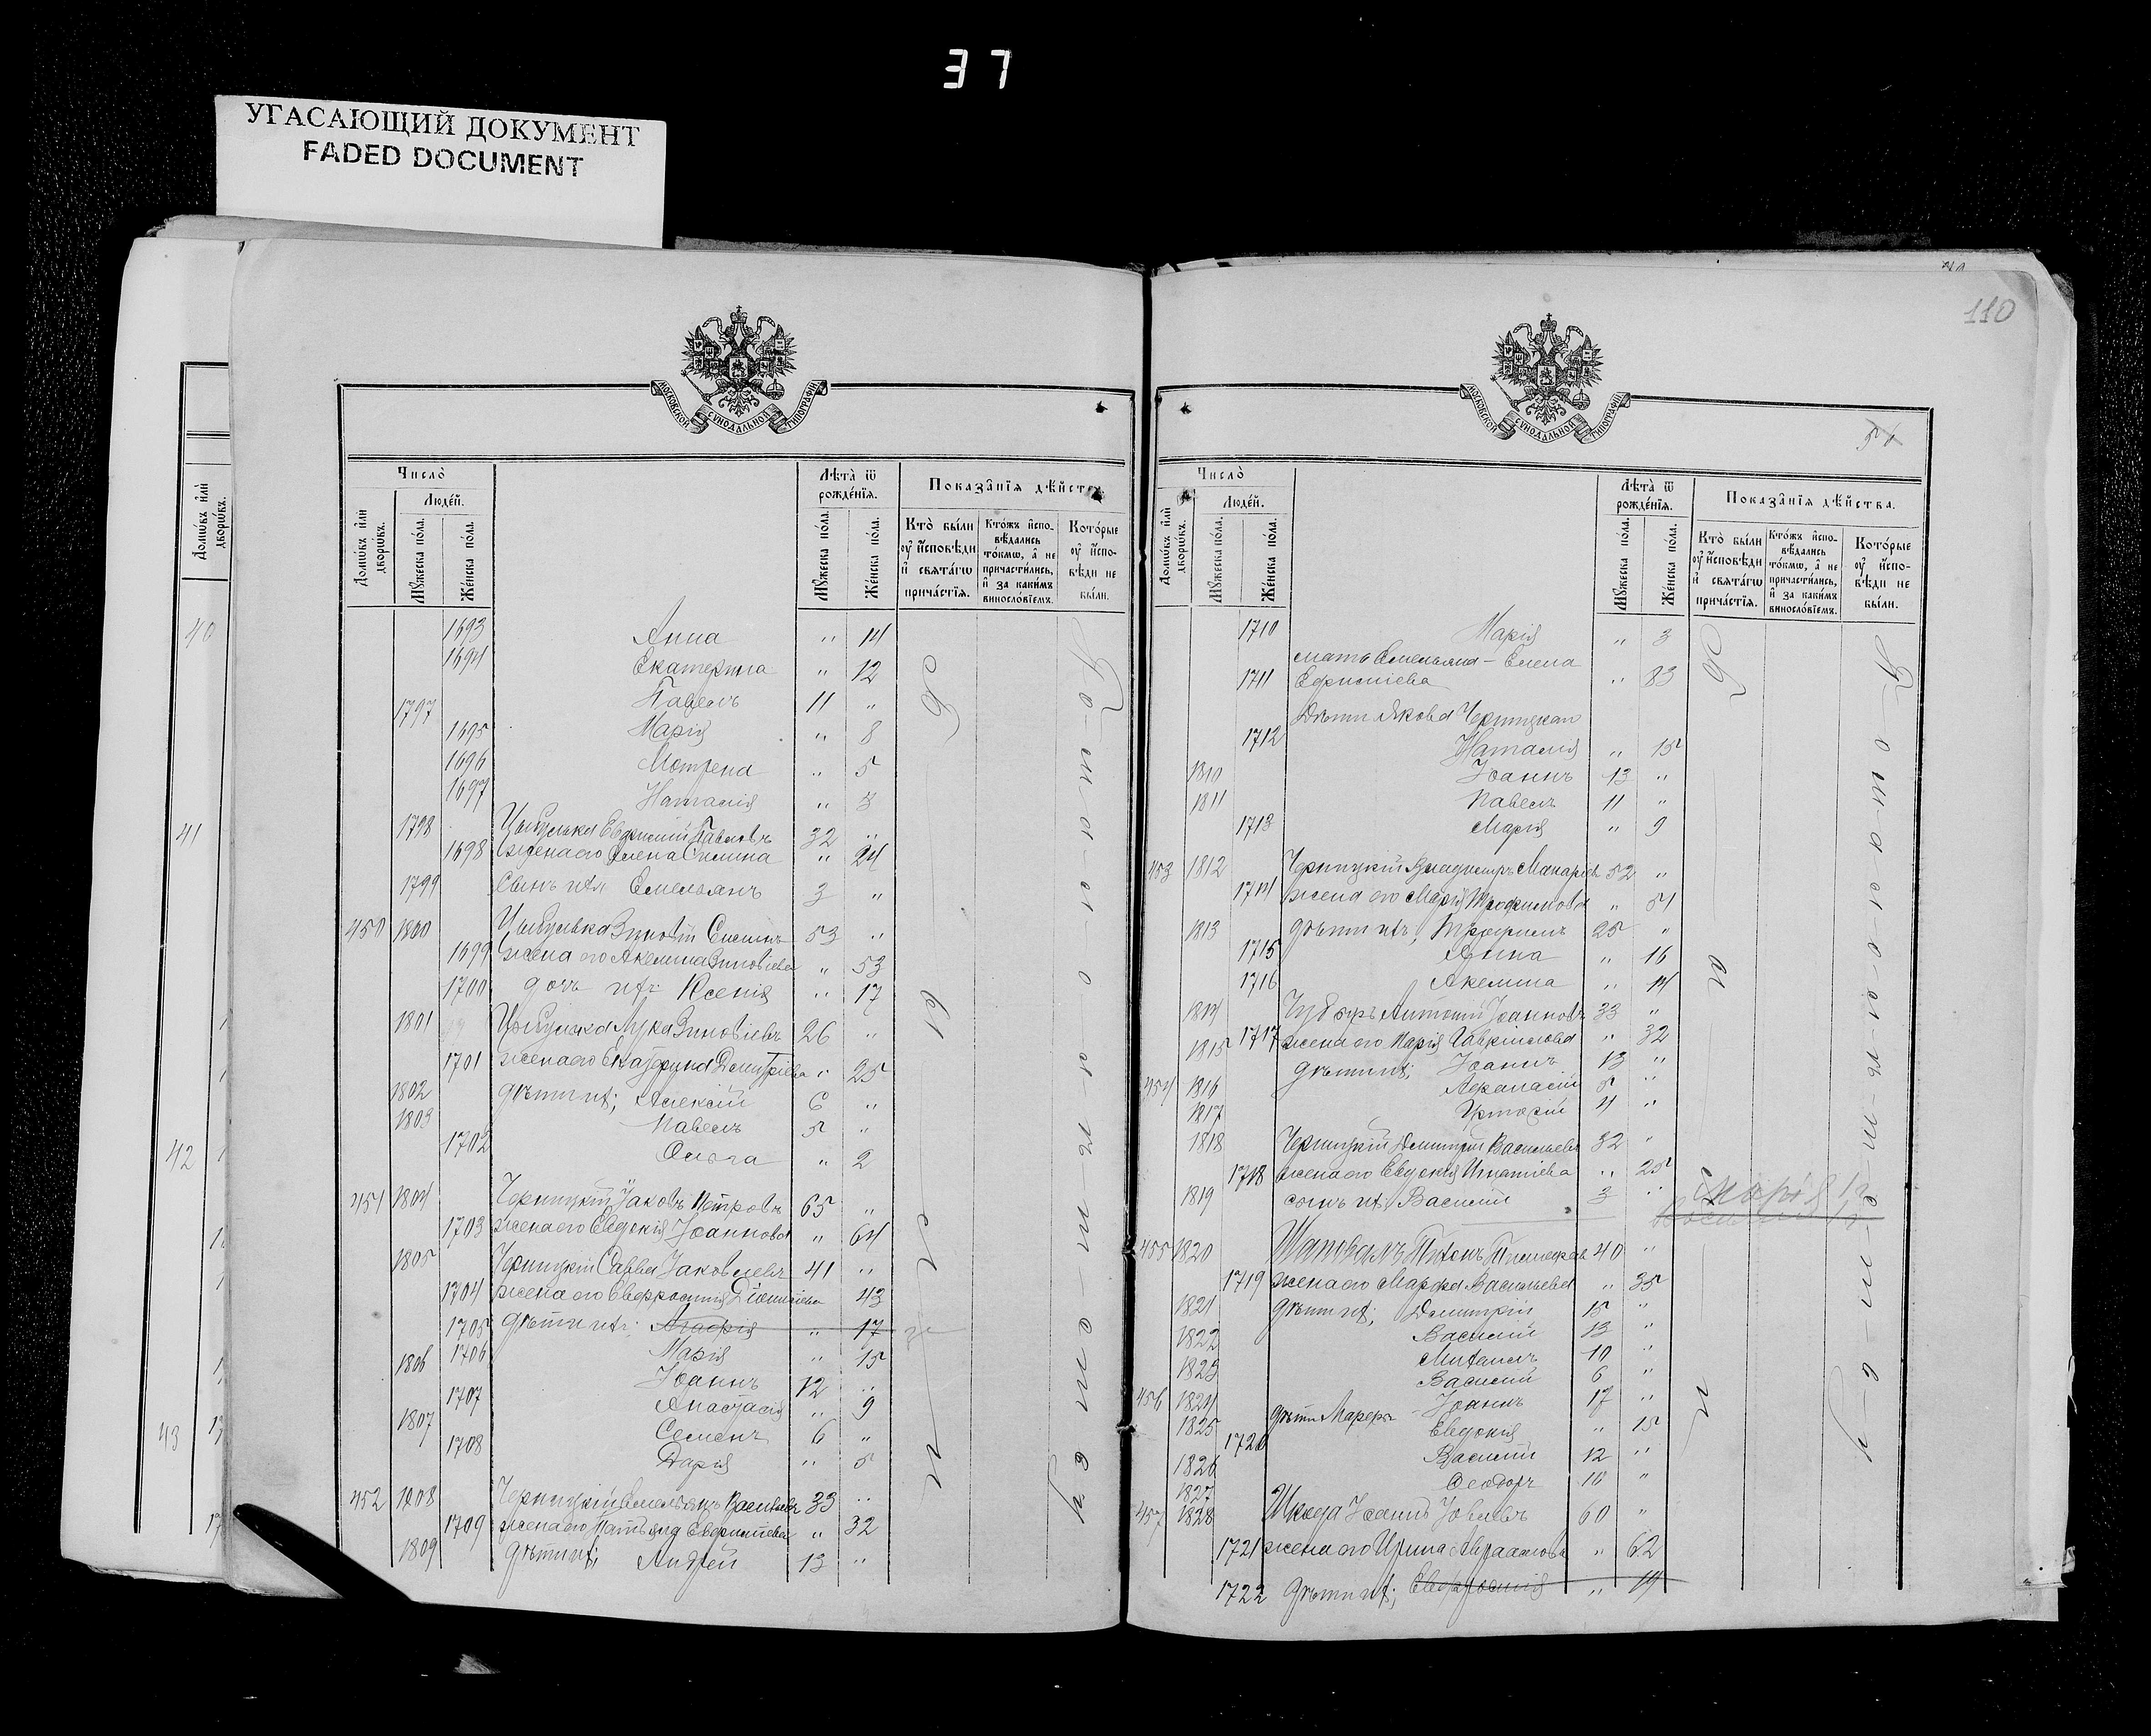 37
УГАСАЮЩИЙ ДОКУМЕНТ
FADED DOCUMENT
40
41
42
43
МОСКОВСКОЙ СѴНОДАЛЬНОЙ ТИПОГРАФІИ
Число̀
Люде́й.
Домѡ́въ и҆лѝ дворѡ́въ.
Мꙋ́жеска по́ла.
Же́нска по́ла.
Лѣ́та ѿ рожде́нїѧ.
Мꙋ́жеска по́ла.
Же́нска по́ла.
Показа̑нїѧ дѣ́йства.
Кто̀ бы́ли ᲂу҆ и҆́сповѣди и҆ свѧта́гѡ прича́стїѧ.
Кто́жъ и҆спо-
вѣ́дались
то́кмѡ, а҆ не
причасти́лись,
и҆ за каки́мъ
виносло́вїемъ.
Кото́рые ᲂу҆ и҆́спо-вѣди не бы́ли.
1693 Анна " 14
1694 Екатерина " 12
1797 Павелъ 11 "
1695 Марія " 8
1696 Мотрена " 5
1697 Наталія " 3
1798 Цыбулька Евфимій Павловъ 32 "
1698 жена его Елена Симина " 24
1799 Сынъ ихъ Емельянъ 3 "
450 1800 Цыбулька Зиновій Симинъ 53 "
1699 жена его Акелина Зиновіева " 53
1700 дочь ихъ Ксенія " 17
1801 Цыбулька Лука Зиновіевъ 26 "
1701 жена его Екатерина Димитріева " 25
1802 дѣти ихъ; Алексій 6 "
1803 Павелъ 5 "
1702 Ольга " 2
451 1804 Черницкій Іаковъ Петровъ 65 "
1703 жена его Евдокія Іоаннова " 64
1805 Черницкій Савва Іаковлевъ 41 "
1704 жена его Евфросинія Діонисіева " 43
1705 дѣти ихъ; Агафія " 17
1706 Марія " 15
1806 Іоаннъ 12 "
1707 Анастасія " 9
1807 Семенъ 6 "
1708 Дарія " 5
452 1808 Черницкій Емельянъ Васильевъ 33 "
1709 жена его Татьяна Евфиміева " 32
1809 дѣти ихъ; Андрей 13 "
110
МОСКОВСКОЙ СѴНОДАЛЬНОЙ ТИПОГРАФІИ
51
Число̀
Люде́й.
Домѡ́въ и҆лѝ дворѡ́въ.
Мꙋ́жеска по́ла.
Же́нска по́ла.
Лѣ́та ѿ рожде́нїѧ.
Мꙋ́жеска по́ла.
Же́нска по́ла.
Показа̑нїѧ дѣ́йства.
Кто̀ бы́ли ᲂу҆ и҆́сповѣди и҆ свѧта́гѡ прича́стїѧ.
Кто́жъ и҆спо-
вѣ́дались
то́кмѡ, а҆ не
причасти́лись,
и҆ за каки́мъ
виносло́вїемъ.
Кото́рые ᲂу҆ и҆́спо-вѣди не бы́ли.
1710 Марія " 3
мать Емельяна - Елена
1711 Ефиміева " 83
Дѣти Якова Черницкаго
1712 Наталія " 15
1810 Іоаннъ 13 "
1811 Павелъ 11 "
1713 Марія " 9
453 1812 Черницкій Владимиръ Макаріевъ 52 "
1714 жена его Марія Трофимова " 54
1813 дѣти ихъ, Трофимъ 25 "
1715 Анна " 16
1716 Акелина " 14
1814 Антоній Іоанновъ 33 "
1815 1717 жена его Марія Гавріилова " 32
дѣти ихъ; Іоаннъ 13 "
454 1816 Афанасій 5 "
1817 4 "
1818 Черницкій Димитрій Васильевъ 32 "
1718 жена его Евдокія Игнатіева " 25
1819 сынъ ихъ Василій 3 "
Марія
455 1820 Шаповалъ Титъ Тимофеевъ 40 "
1719 жена его Марфа Васильева " 35
1821 дѣти ихъ; Димитрій 15 "
1822 Василій 13 "
1823 Михаилъ 10 "
Василій 6 "
456 1824 дѣти Марфы - Іоаннъ 17 "
1825 1720 Евдокія " 15
1826 Василій 12 "
1827 Феодоръ 10 "
457 1828 Шкода Іоаннъ Іовлевъ 60 "
1721 жена его Ирина Авраамова " 62
1722 дѣти ихъ; Евфросинія " 19